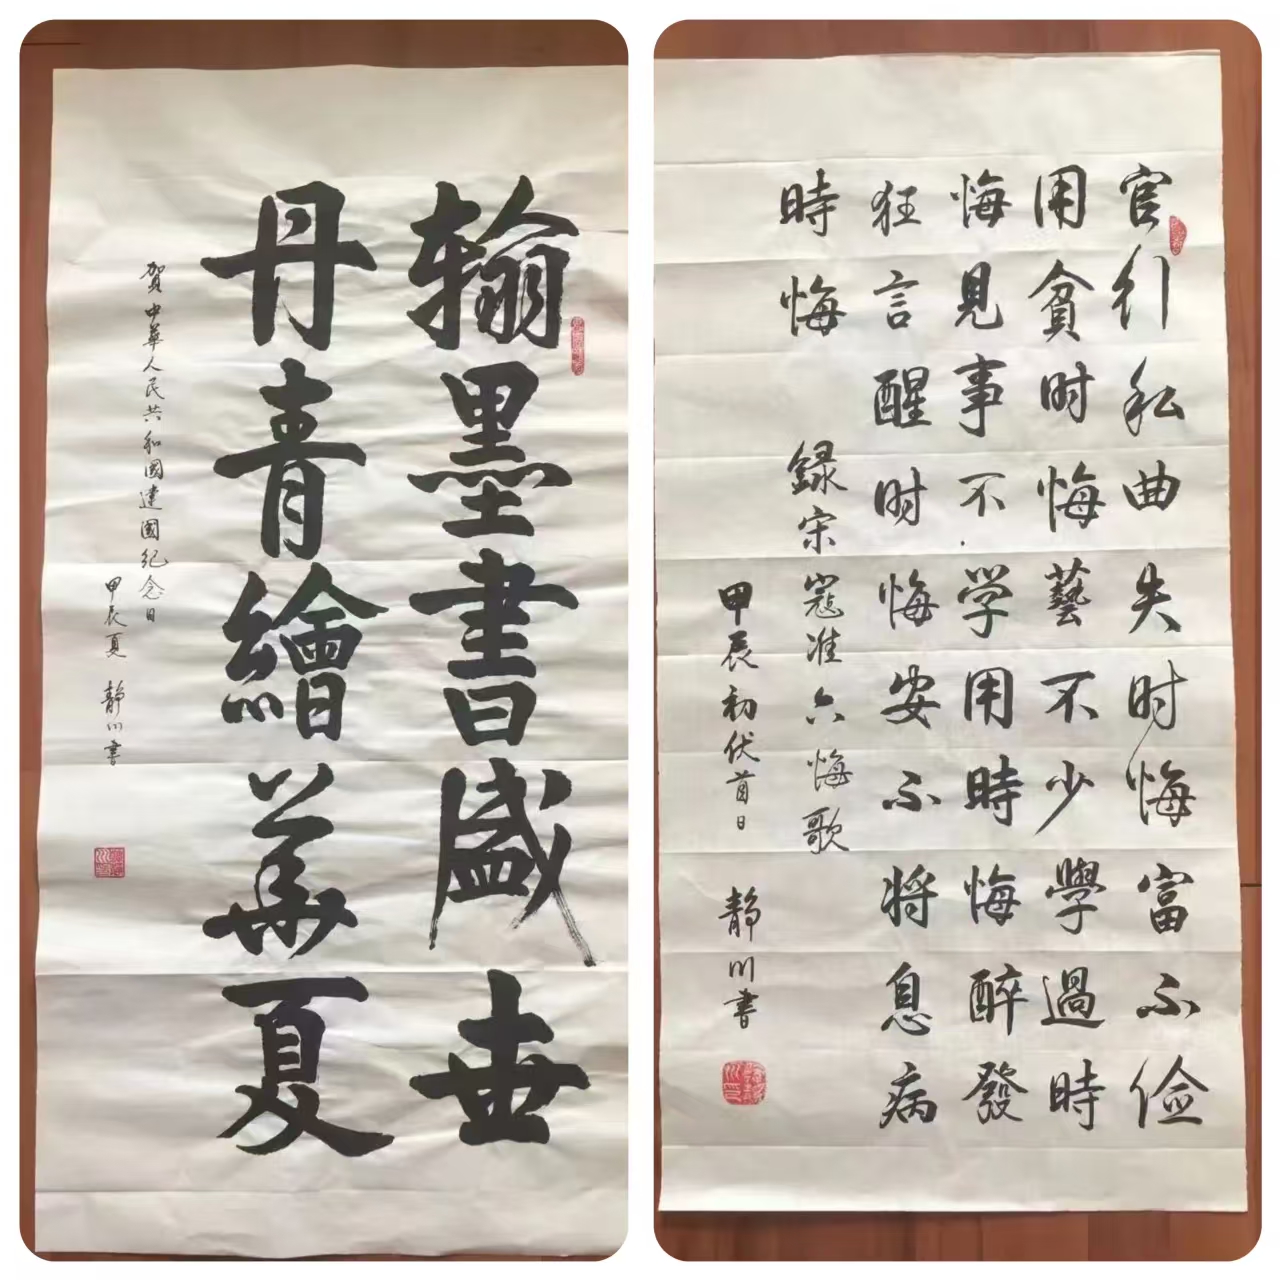 翰墨書盛世
丹青繪華夏
賀中華人民共和國建國紀念日
甲辰夏 静川書
官行私曲失时悔富不俭
用貧时悔藝不少學過時
悔見事不学用時悔醉發
狂言醒时悔安不将息病
時悔
録宋寇准六悔歌
甲辰初伏首日 静川書